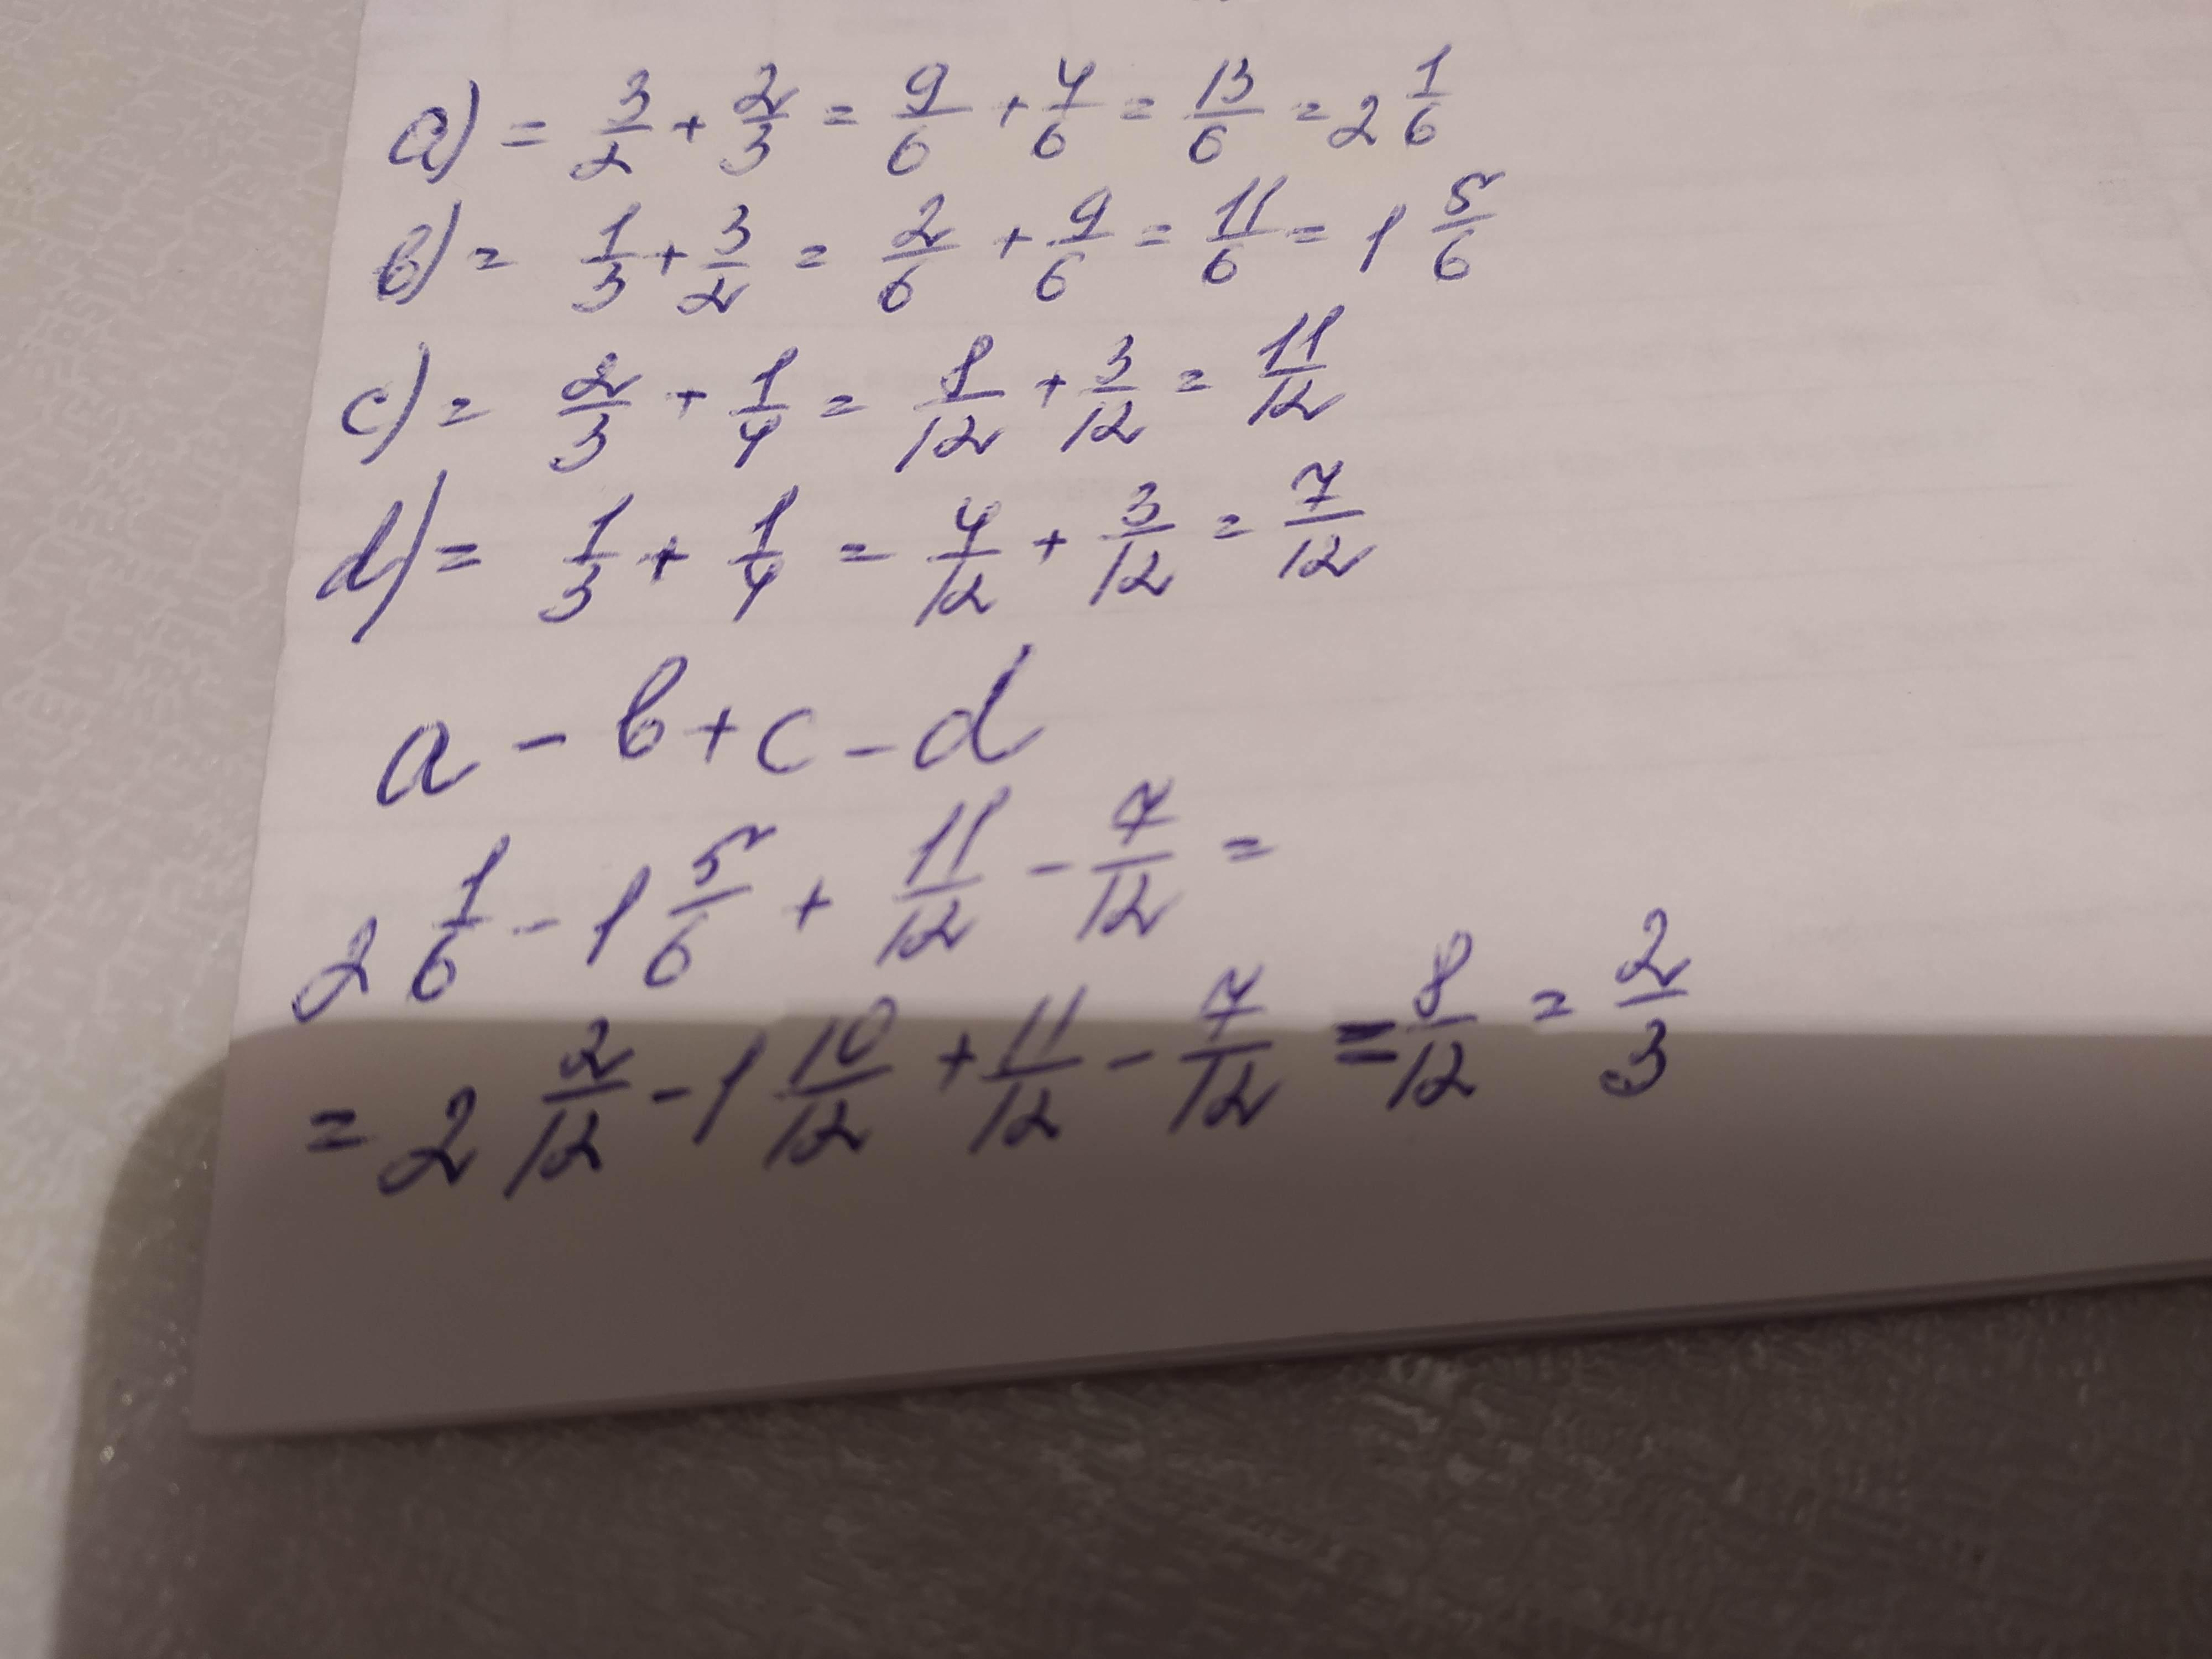 a) = 3/2 + 2/3 = 9/6 + 4/6 = 13/6 = 2 1/6
b) = 1/3 + 3/2 = 2/6 + 9/6 = 11/6 = 1 5/6
c) = 2/3 + 1/4 = 8/12 + 3/12 = 11/12
d) = 1/3 + 1/4 = 4/12 + 3/12 = 7/12
a - b + c - d
2 1/6 - 1 5/6 + 11/12 - 7/12 =
= 2 2/12 - 1 10/12 + 11/12 - 7/12 = 8/12 = 2/3